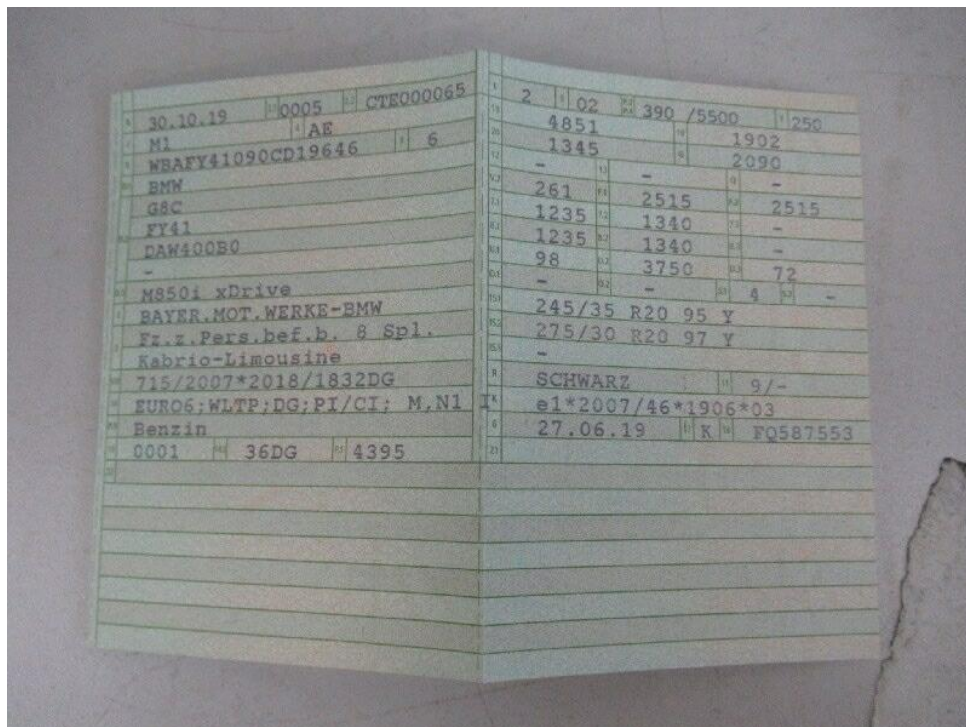 30.10.19 0005 CTE000065
M1 AE
WBAFY41090CD19646 6
BMW
G8C
FY41
DAW400B0
-
M850i xDrive
BAYER.MOT.WERKE-BMW
Fz.z.Pers.bef.b. 8 Spl.
Kabrio-Limousine
715/2007*2018/1832DG
EURO6;WLTP;DG;PI/CI; M,N1 I
Benzin
0001 36DG 4395
2 02 390 /5500 250
4851 1902
1345 2090
- - -
261 2515 2515
1235 1340 -
1235 1340 -
98 3750 72
- - 4 -
245/35 R20 95 Y
275/30 R20 97 Y
-
SCHWARZ 9/-
e1*2007/46*1906*03
27.06.19 K FQ587553